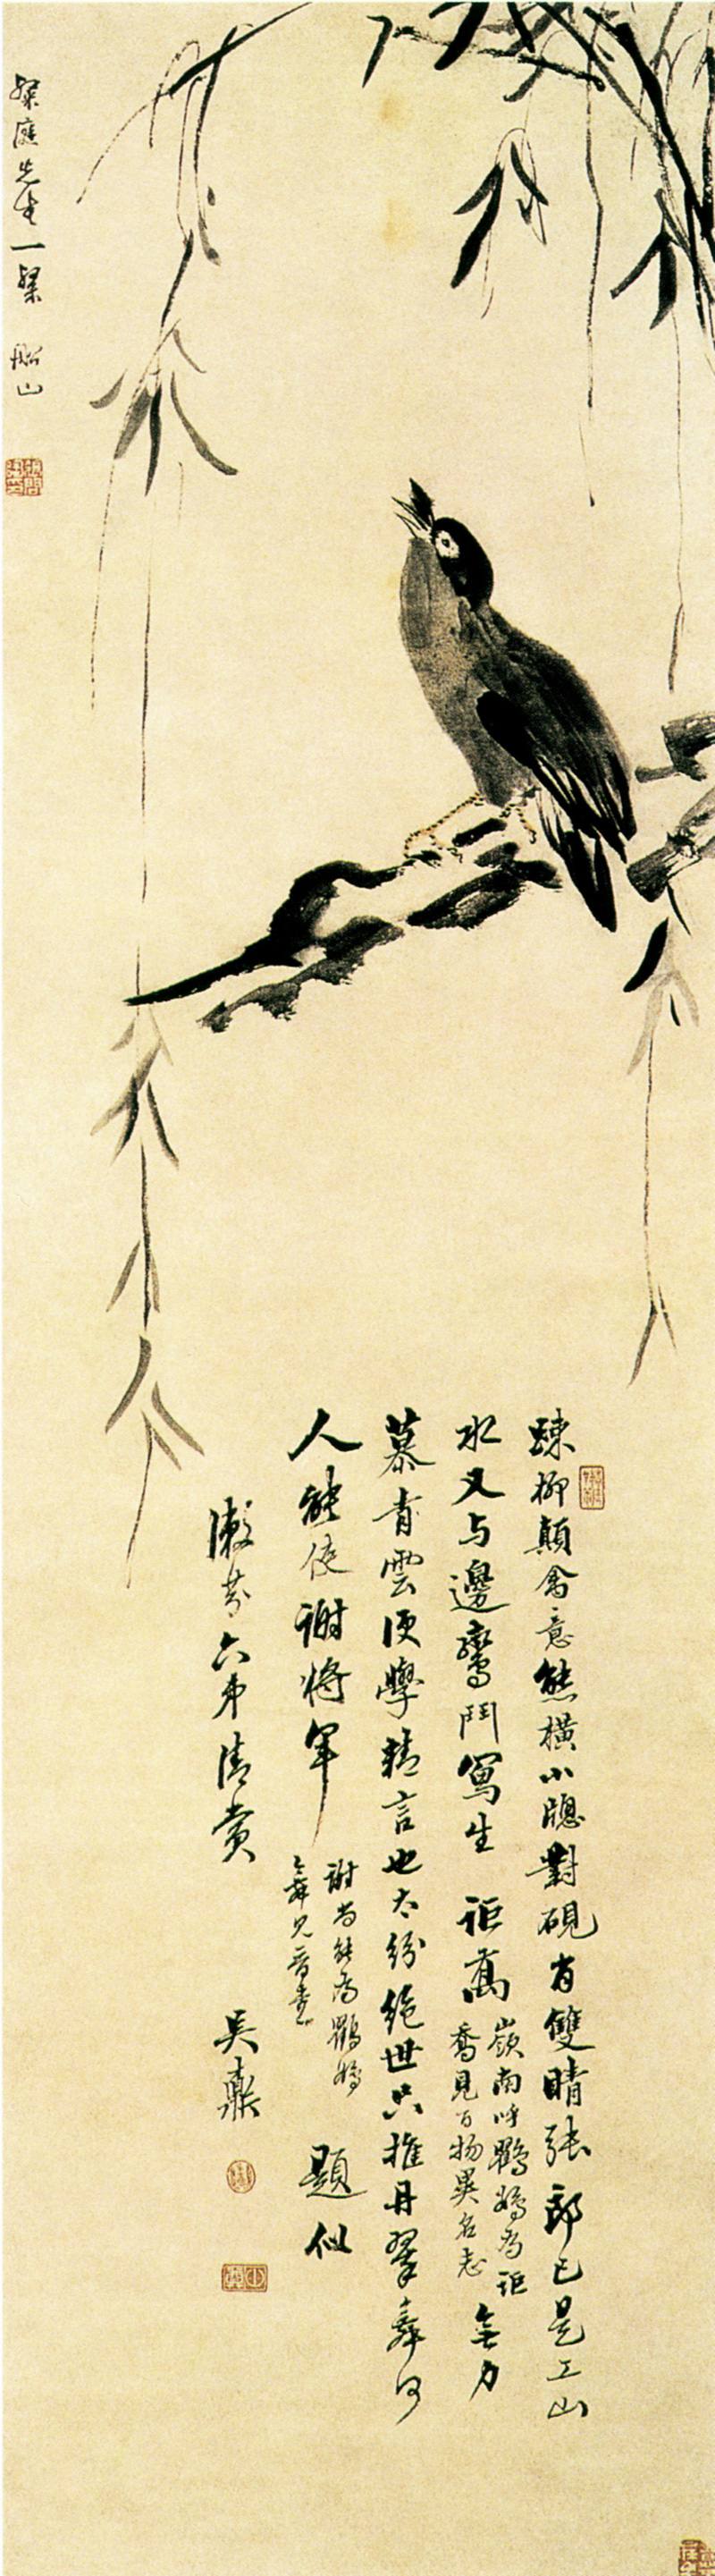 粲庭先生一粲 船山
疎柳顛禽意態橫小牕對硯有雙睛張郎已是工山
水又与邊鸞鬥寫生 詎喬
嶺南呼鸜鵒為詎
喬見百物異名志
無力
慕青雲便學精言也太紛絕世只推丹翠舞何
人能使謝將軍
謝尚能為鸜鵒
舞見晉書
題似
漱芬六弟清賞 吳鼒